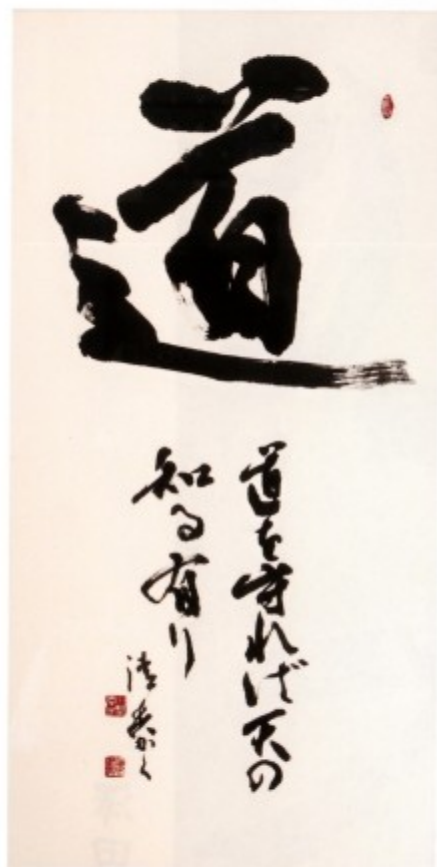 道
道を守れば天の
知る有り